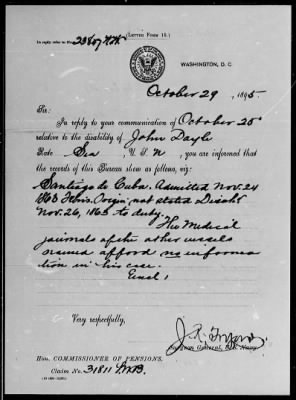 (LETTER FORM 10.)
In reply refer to No.
WASHINGTON, D. C.
October 29, 1895
Sir:
In reply to your communication of October 25"
relative to the disability of John Dayle
Rate Sea, U.S. N, you are informed that
the records of this Bureau show as follows, viz:
Santiago de Cuba. Admitted Nov. 24
1865 Febris. Origin, not stated Disch'd
Nov. 26, 1865 to duty.
The Medical
journals of the other vessels
named afford no informa
tion in his case.
Encl 1
Very respectfully,
Surgeon General, U.S. Navy
Hon. COMMISSIONER OF PENSIONS,
Claim No. 31811